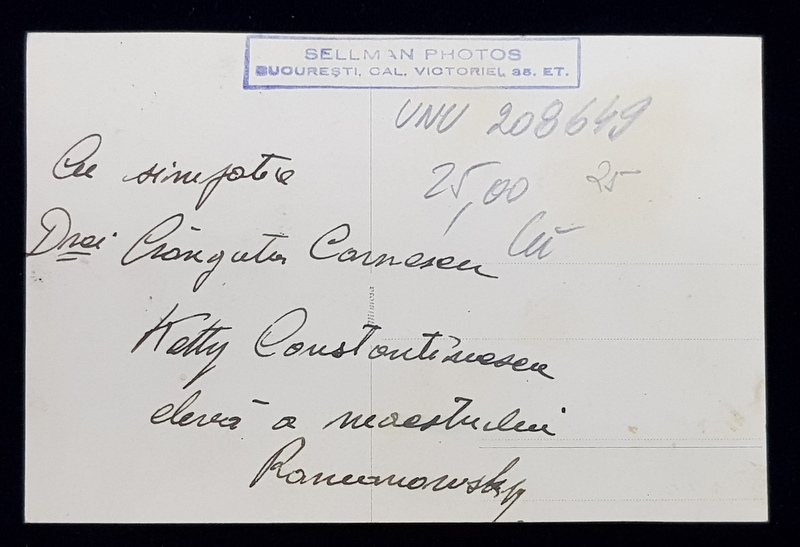 SELLMAN PHOTOS
BUCUREȘTI, CAL. VICTORIEI, 35. ET.
UNU 208649
25,00 25
Cu simpatie
Drei Crânguța Cornescu
Ketty Constantinescu
elevă a maestrului
Romanowsky
Mimosa